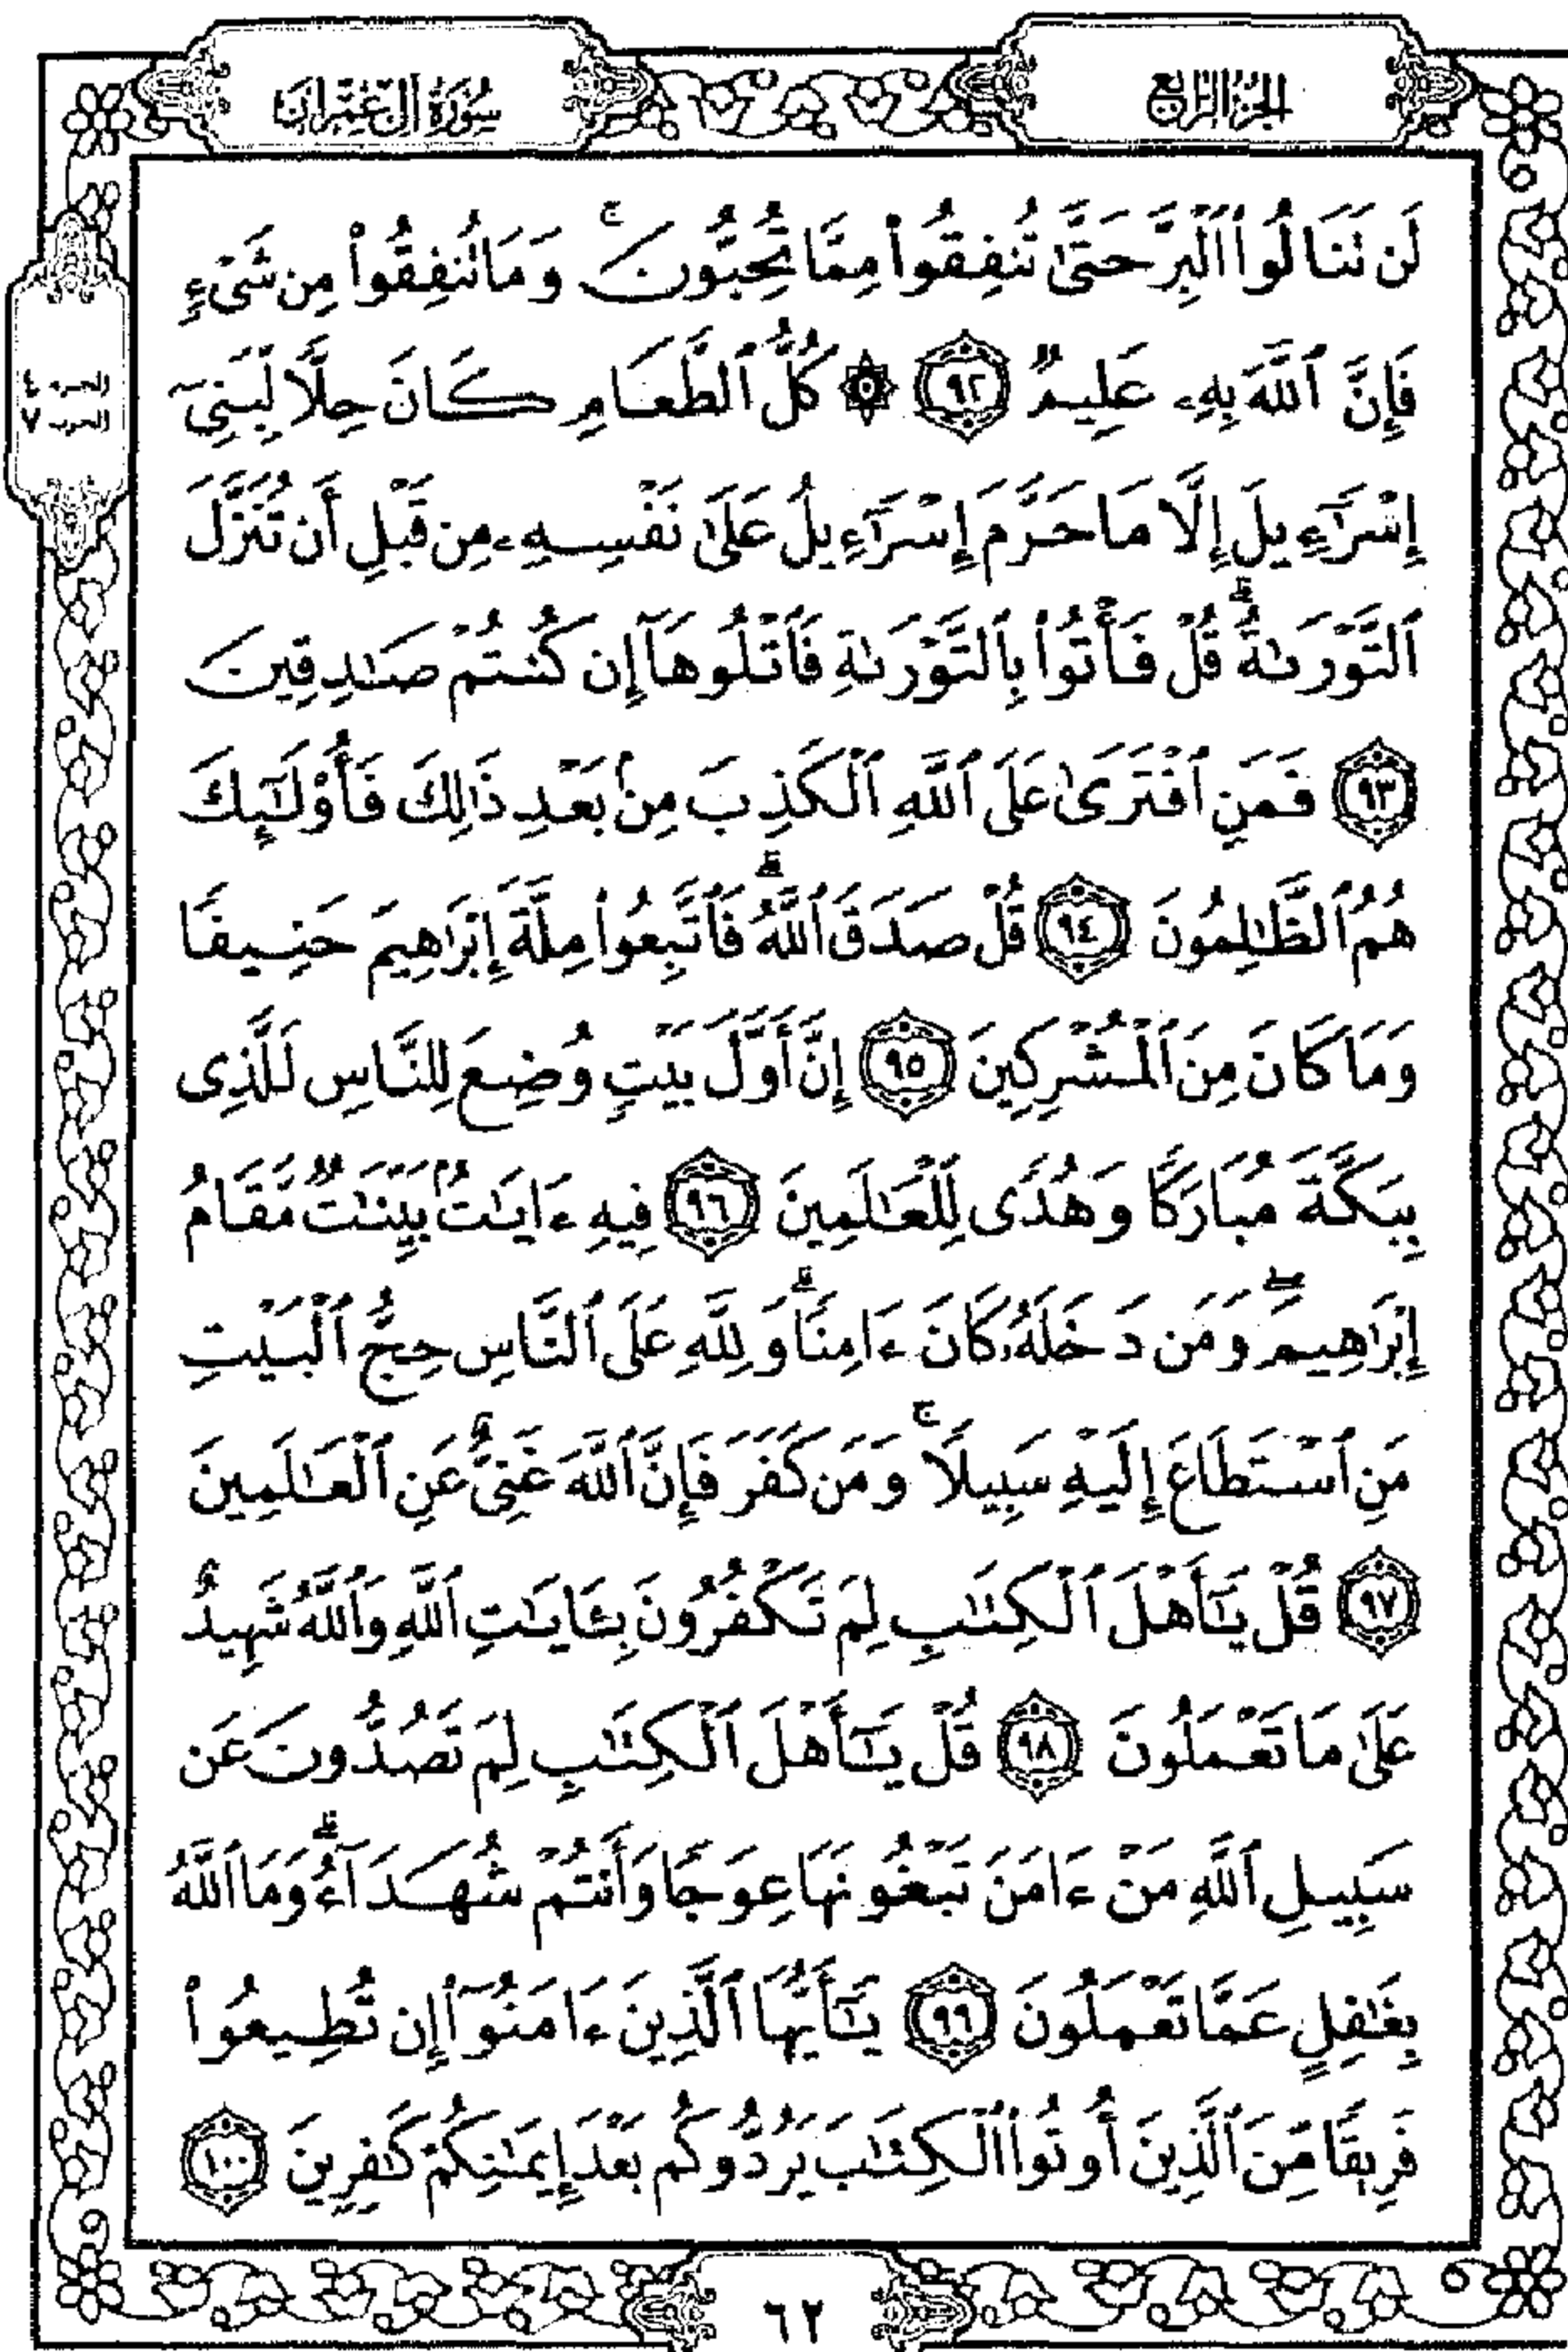 الجزء الرابع
سُورَةُ آلِ عِمْرَانَ
لَن تَنَالُوا۟ ٱلْبِرَّ حَتَّىٰ تُنفِقُوا۟ مِمَّا تُحِبُّونَ ۚ وَمَا تُنفِقُوا۟ مِن شَىْءٍ
فَإِنَّ ٱللَّهَ بِهِۦ عَلِيمٌ ﴿٩٢﴾ ۞ كُلُّ ٱلطَّعَامِ كَانَ حِلًّا لِّبَنِىٓ
إِسْرَٰٓءِيلَ إِلَّا مَا حَرَّمَ إِسْرَٰٓءِيلُ عَلَىٰ نَفْسِهِۦ مِن قَبْلِ أَن تُنَزَّلَ
ٱلتَّوْرَىٰةُ ۗ قُلْ فَأْتُوا۟ بِٱلتَّوْرَىٰةِ فَٱتْلُوهَآ إِن كُنتُمْ صَـٰدِقِينَ
﴿٩٣﴾ فَمَنِ ٱفْتَرَىٰ عَلَى ٱللَّهِ ٱلْكَذِبَ مِنۢ بَعْدِ ذَٰلِكَ فَأُو۟لَـٰٓئِكَ
هُمُ ٱلظَّـٰلِمُونَ ﴿٩٤﴾ قُلْ صَدَقَ ٱللَّهُ ۗ فَٱتَّبِعُوا۟ مِلَّةَ إِبْرَٰهِيمَ حَنِيفًا
وَمَا كَانَ مِنَ ٱلْمُشْرِكِينَ ﴿٩٥﴾ إِنَّ أَوَّلَ بَيْتٍ وُضِعَ لِلنَّاسِ لَلَّذِى
بِبَكَّةَ مُبَارَكًا وَهُدًى لِّلْعَـٰلَمِينَ ﴿٩٦﴾ فِيهِ ءَايَـٰتٌۢ بَيِّنَـٰتٌ مَّقَامُ
إِبْرَٰهِيمَ ۖ وَمَن دَخَلَهُۥ كَانَ ءَامِنًا ۗ وَلِلَّهِ عَلَى ٱلنَّاسِ حِجُّ ٱلْبَيْتِ
مَنِ ٱسْتَطَاعَ إِلَيْهِ سَبِيلًا ۚ وَمَن كَفَرَ فَإِنَّ ٱللَّهَ غَنِىٌّ عَنِ ٱلْعَـٰلَمِينَ
﴿٩٧﴾ قُلْ يَـٰٓأَهْلَ ٱلْكِتَـٰبِ لِمَ تَكْفُرُونَ بِـَٔايَـٰتِ ٱللَّهِ وَٱللَّهُ شَهِيدٌ
عَلَىٰ مَا تَعْمَلُونَ ﴿٩٨﴾ قُلْ يَـٰٓأَهْلَ ٱلْكِتَـٰبِ لِمَ تَصُدُّونَ عَن
سَبِيلِ ٱللَّهِ مَنْ ءَامَنَ تَبْغُونَهَا عِوَجًا وَأَنتُمْ شُهَدَآءُ ۗ وَمَا ٱللَّهُ
بِغَـٰفِلٍ عَمَّا تَعْمَلُونَ ﴿٩٩﴾ يَـٰٓأَيُّهَا ٱلَّذِينَ ءَامَنُوٓا۟ إِن تُطِيعُوا۟
فَرِيقًا مِّنَ ٱلَّذِينَ أُوتُوا۟ ٱلْكِتَـٰبَ يَرُدُّوكُم بَعْدَ إِيمَـٰنِكُمْ كَـٰفِرِينَ ﴿١٠٠﴾
الجزء ٤
الحزب ٧
٦٢